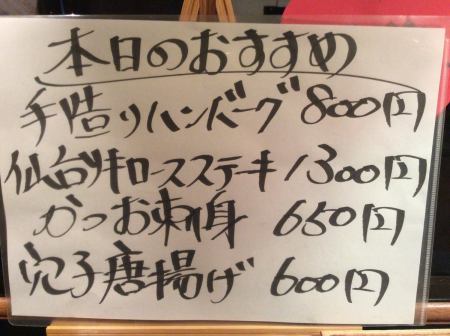 本日のおすすめ
手造りハンバーグ 800円
仙台牛ロースステーキ 1300円
かつお刺身 650円
穴子唐揚げ 600円